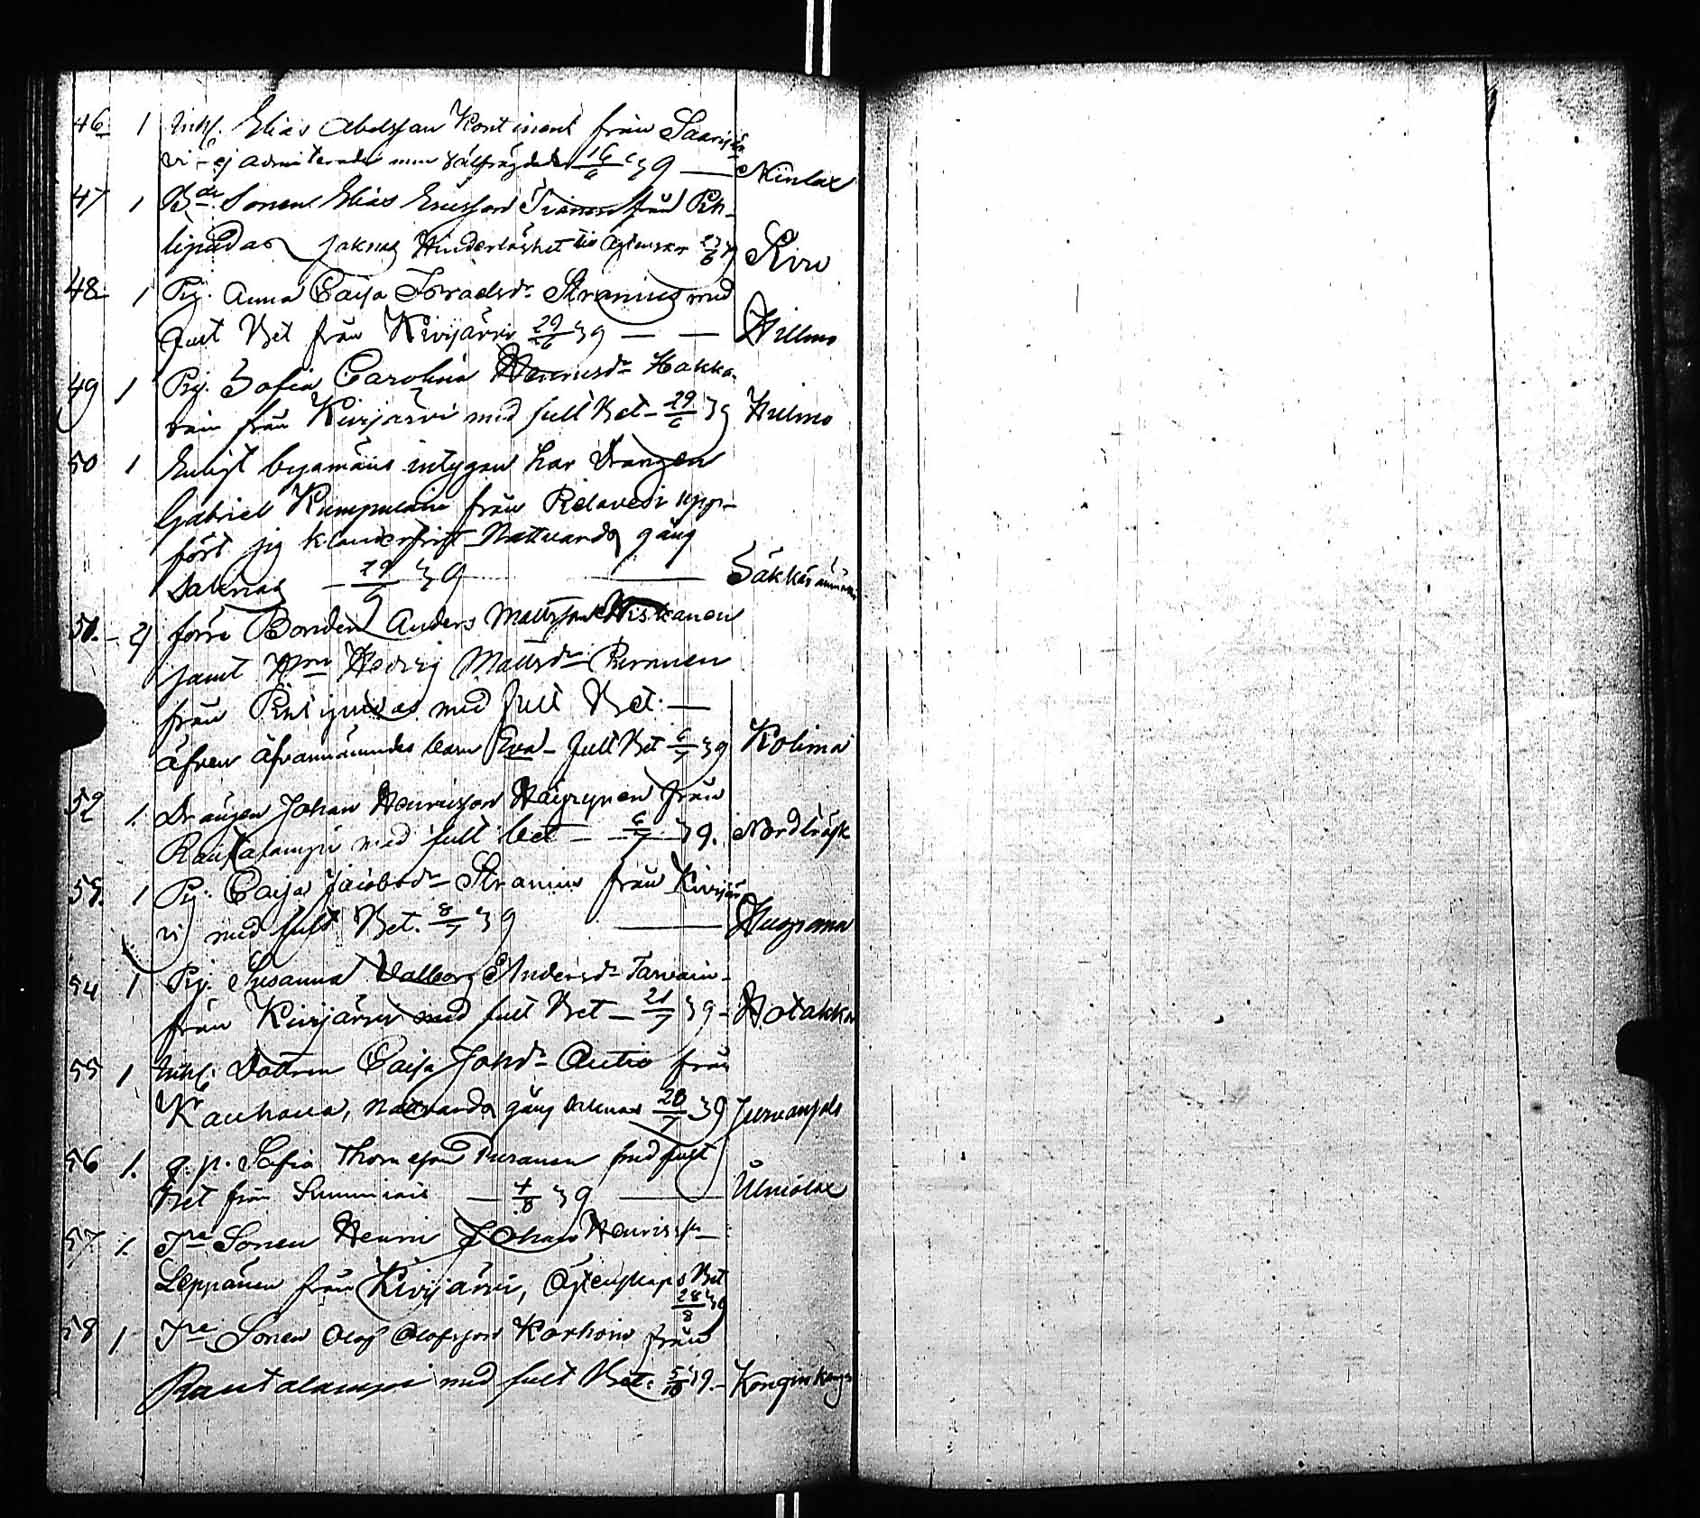 46. 1 Inhs. Elias Abelsson Kontinent från Saarijär
vi - ej admitterades men välfrägdad 16/6 39 — Ninlax
47 1 Bde Sonen Elias Ericsson från Pih-
lipudas saknas Hinderlöshet till Äktenskap 23/6 39 Kivu
48 1 Pig. Anna Caisa Isracelsdr Stranius med
fult Bet från Kivijärvi 29/6 39 — — Willmo
49 1 Pig. Sofia Carolina Hakka-
rain från Kivijärvi med fult Bet - 29/6 39 Hulmo
50 1 Enligt byamäns intygan har Drängen
Gabriel Kumpulain från Pelavesi upp-
fört sig klanderfritt Nattvards gång
Saknas - 29/6 39 — Säkkärä
51. - 2 förre Bonden Anders Mattsson Hiskanen
jemt Hru Hedvig Mattsdr Piranen
från Pihlipudas med fult Bet: —
äfven äfvannämndes barn Eva - fult Bet 6/7 39 Kolima
52 1. Drängen Johan Henricsson Häyrynen från
Rautalampi med fult bet - 6/7 39. Nordträsk
53. 1 Pig. Caisa Jacobsdr Stranius från Kivijär
vi med fult Bet. 8/7 39 — Huopana
54 1 Pig. Susanna Valborg Andersdr Tarvain-
från Kivijärvi med fult Bet - 21/7 39 - Hotakka
55 1 Inhs. Dottren Caisa Johdr Autio från
Kauhava, Nattvards gång saknas 28/7 39
56 1. q. p. Sofia Thomasdr Piranen med fult
Bet från Sumiais — 4/8 39 — Ulmolax
57 1. Tre Sonen Henric Johan Henricss.
Leppänen från Kivijärvi, Äktenskaps Bet
28/8 39
58 1 Tre Sonen Olof Olofsson Korhoin från
Rautalampi med fult Bet: 5/10 39. - Konginkangas